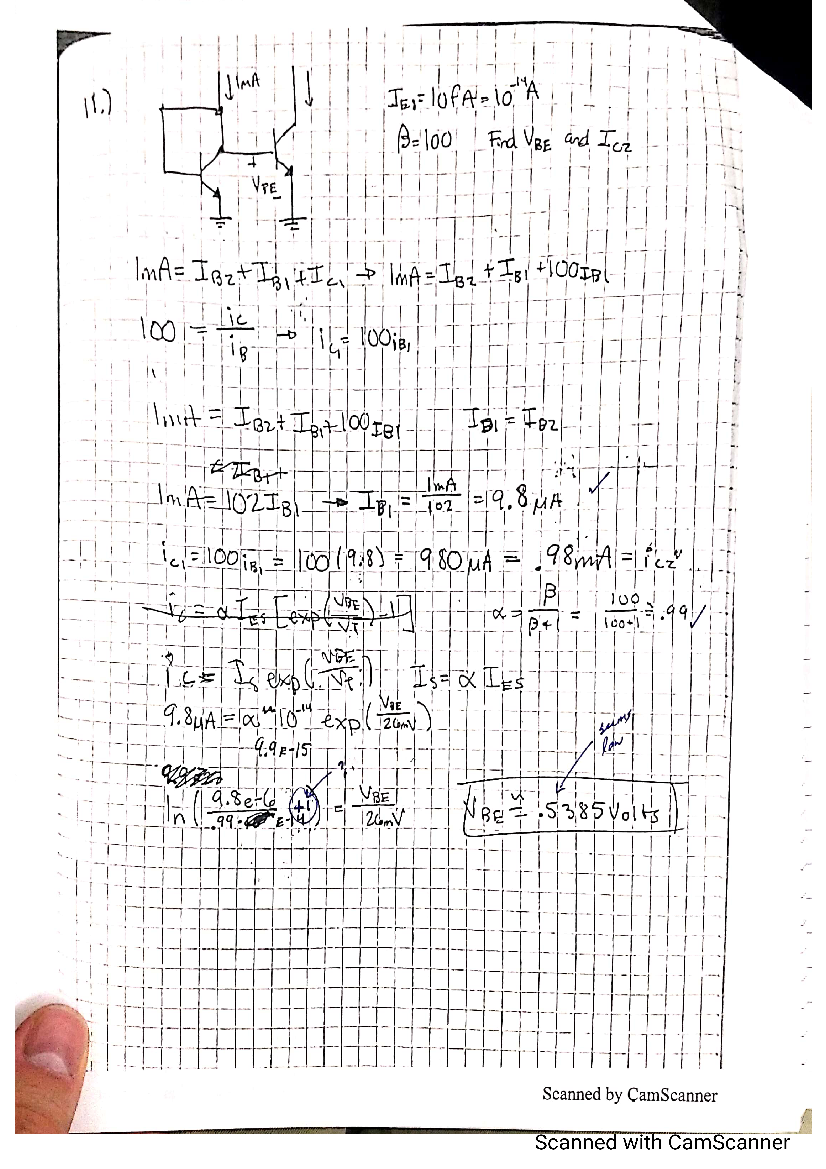 11.)
↓1mA ↓
I_E1=10fA=10^-14A
β=100 Find V_BE and I_C2
+ V_BE -
1mA= I_B2+I_B1+I_C1 → 1mA=I_B2+I_B1+100I_B1
100 = ic/i_B → i_C1= 100i_B1
1mA = I_B2+I_B1+100I_B1 I_B1=I_B2
1mA=102I_B1 → I_B1 = 1mA/102 = 9.8 μA ✓
i_C1=100i_B1 = 100(9.8) = 980 μA = .98mA = i_C2
i_C = α I_ES [exp(V_BE/V_T) -1] α = β/β+1 = 100/100+1 = .99 ✓
i_C = I_S exp(V_BE/V_T) I_S= α I_ES
9.8μA = α 10^-14 exp(V_BE/26mV)
9.9E-15
seems low
?
ln(9.8e-6/.99 E-14 +1) = V_BE/26mV V_BE ≈ .5385Volts
Scanned by CamScanner
Scanned with CamScanner